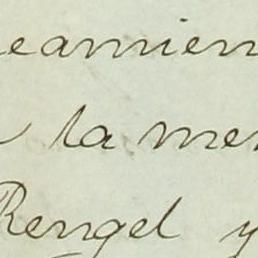 eamien
la me
Rengel y